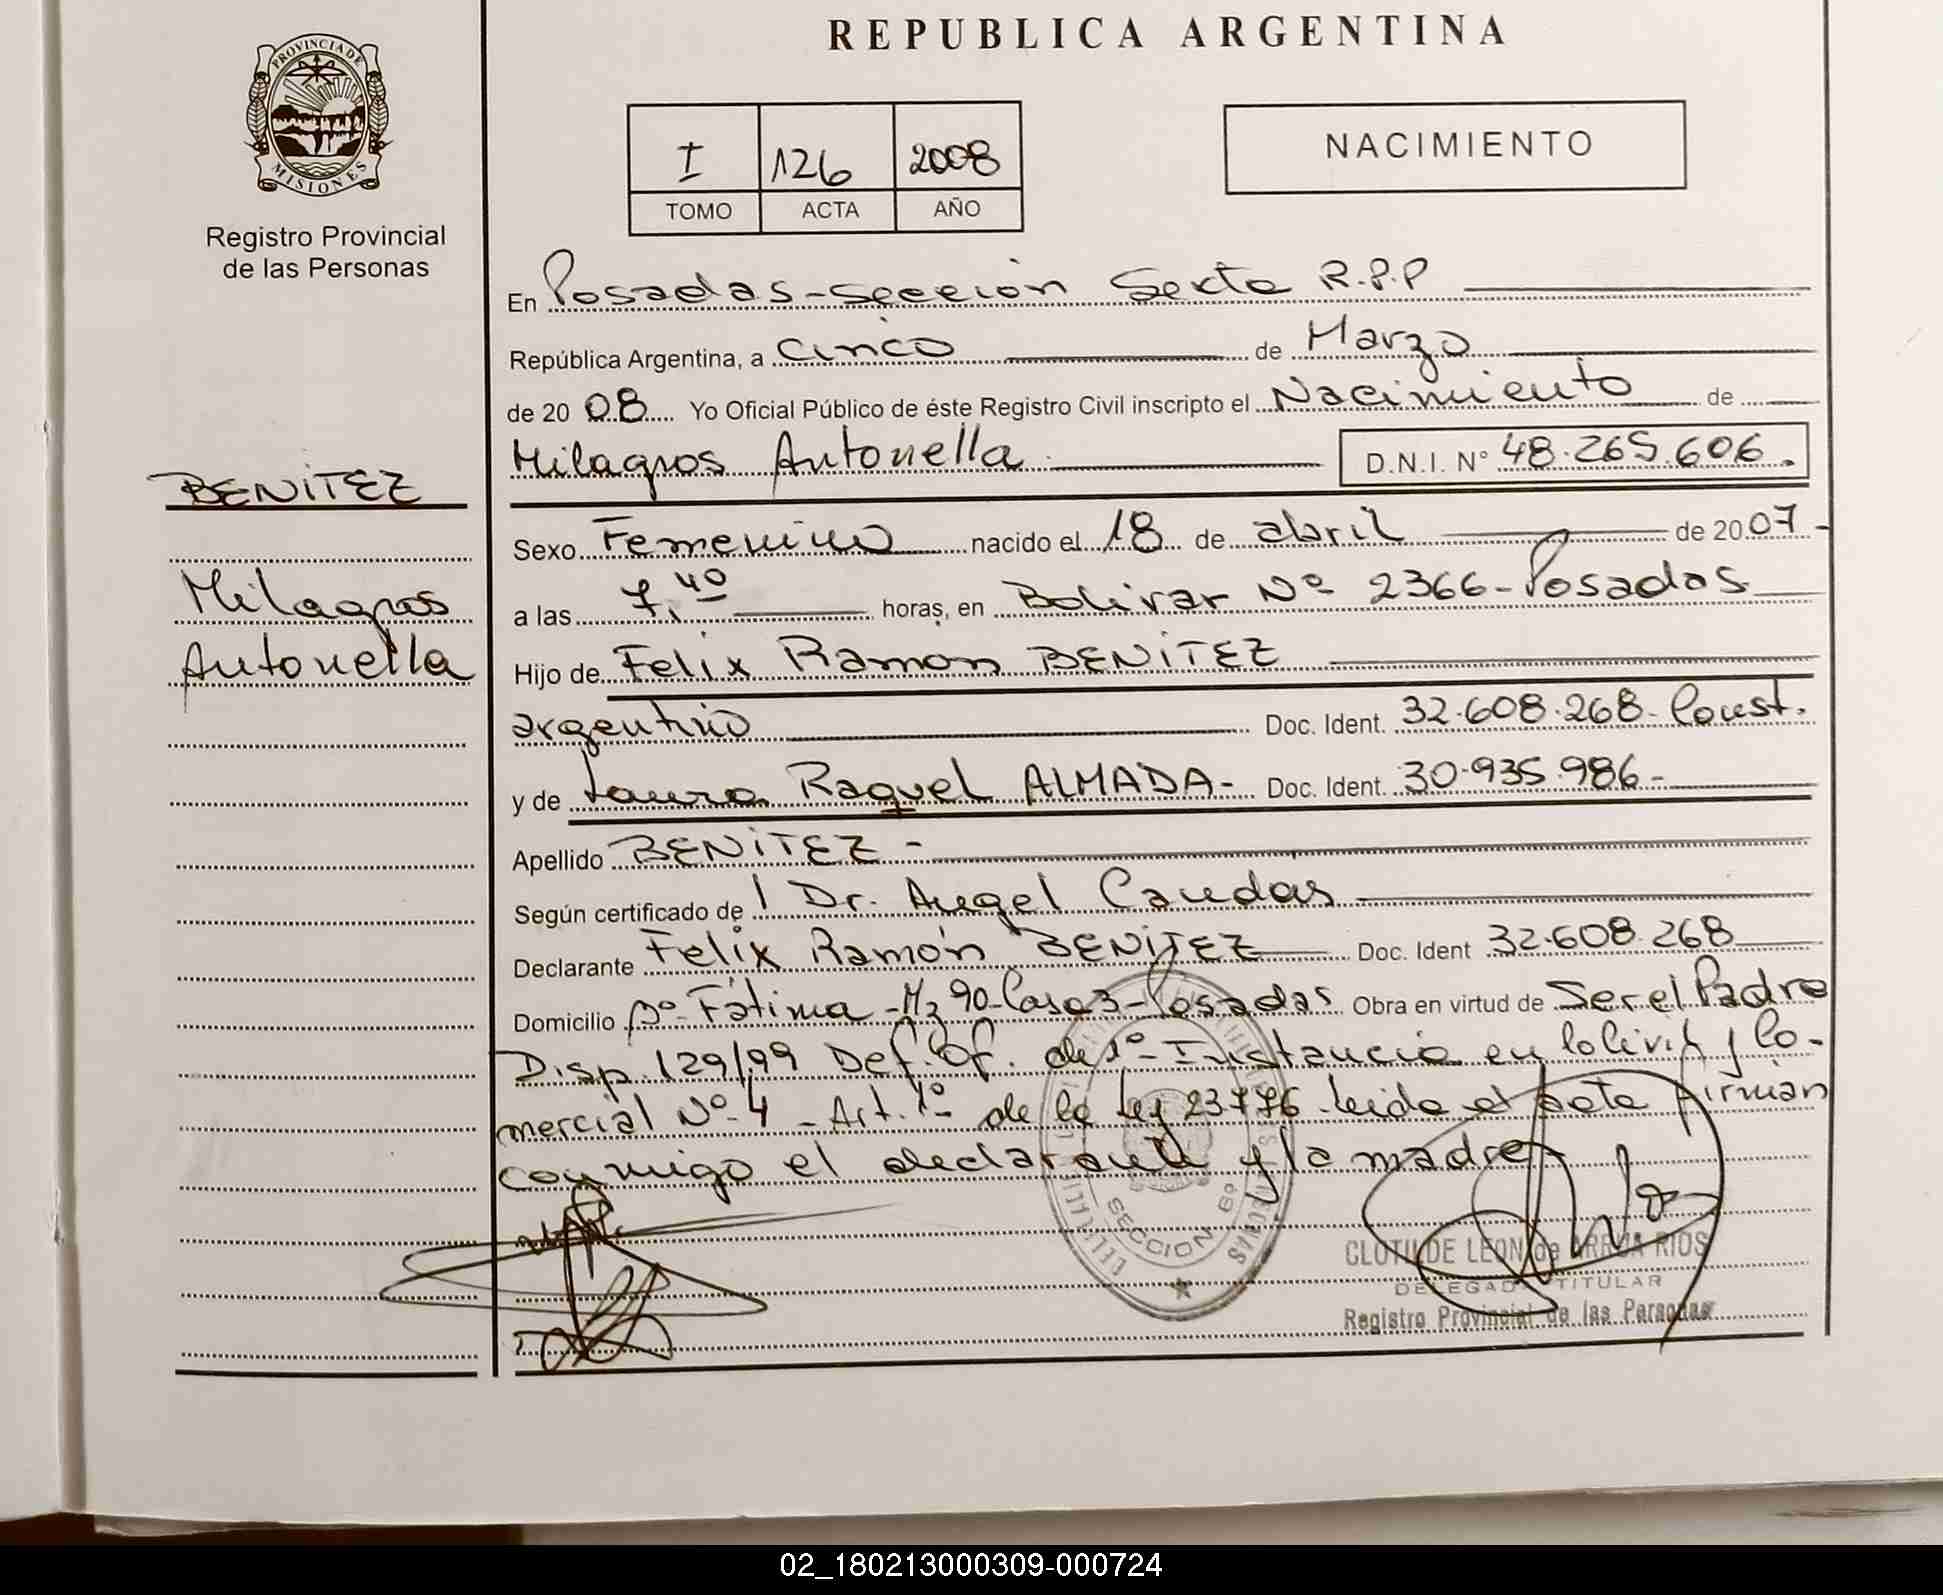 REPUBLICA ARGENTINA
PROVINCIA DE MISIONES
Registro Provincial
de las Personas
I 126 2008
TOMO ACTA AÑO
NACIMIENTO
En Posadas-Sección Sexta R.P.P
República Argentina, a Cinco de Marzo
de 2008 Yo Oficial Público de éste Registro Civil inscripto el Nacimiento de
Milagros Antonella D.N.I. N° 48.265.606.
BENITEZ
Milagros
Antonella
Sexo Femenino nacido el 18 de abril de 2007-
a las 7,40 horas, en Bolivar Nº 2366-Posadas
Hijo de Felix Ramon BENITEZ
argentino Doc. Ident. 32.608.268- Const.
y de Laura Raquel ALMADA- Doc. Ident. 30.935.986-
Apellido BENITEZ-
Según certificado de Dr. Angel Candas
Declarante Felix Ramón BENITEZ Doc. Ident 32.608.268
Domicilio Bº Fátima-Mz 90-Casa 3-Posadas Obra en virtud de Ser el Padre
Disp. 129/99 Def. Of. de 1º Instancia en lo Civil y Co-
mercial Nº 4 - Art. 1º de la Ley 23776 leida el acta firman
conmigo el declarante y la madre
SECCION 6º
CLOTILDE LEON de ARRUA RIOS
DELEGADA TITULAR
Registro Provincial de las Personas
02_180213000309-000724